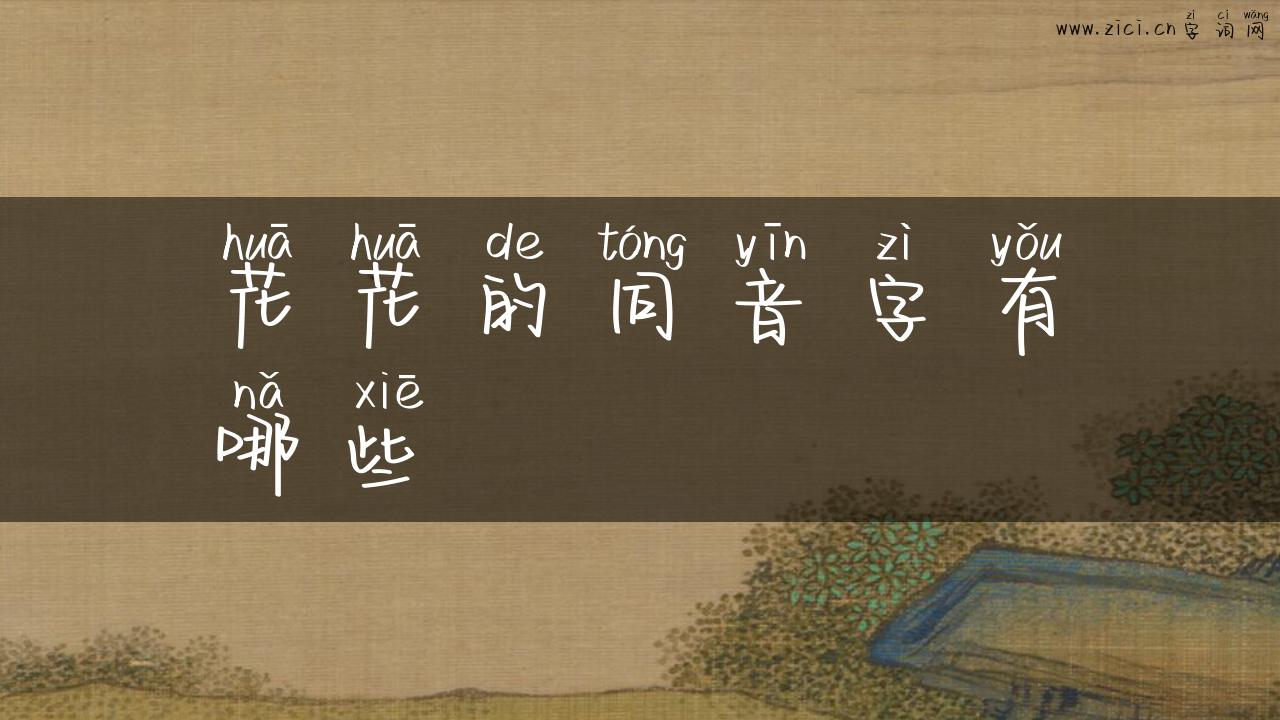 zì cí wǎng
www.zici.cn 字词网
huā huā de tóng yīn zì yǒu
花花的同音字有
nǎ xiē
哪些